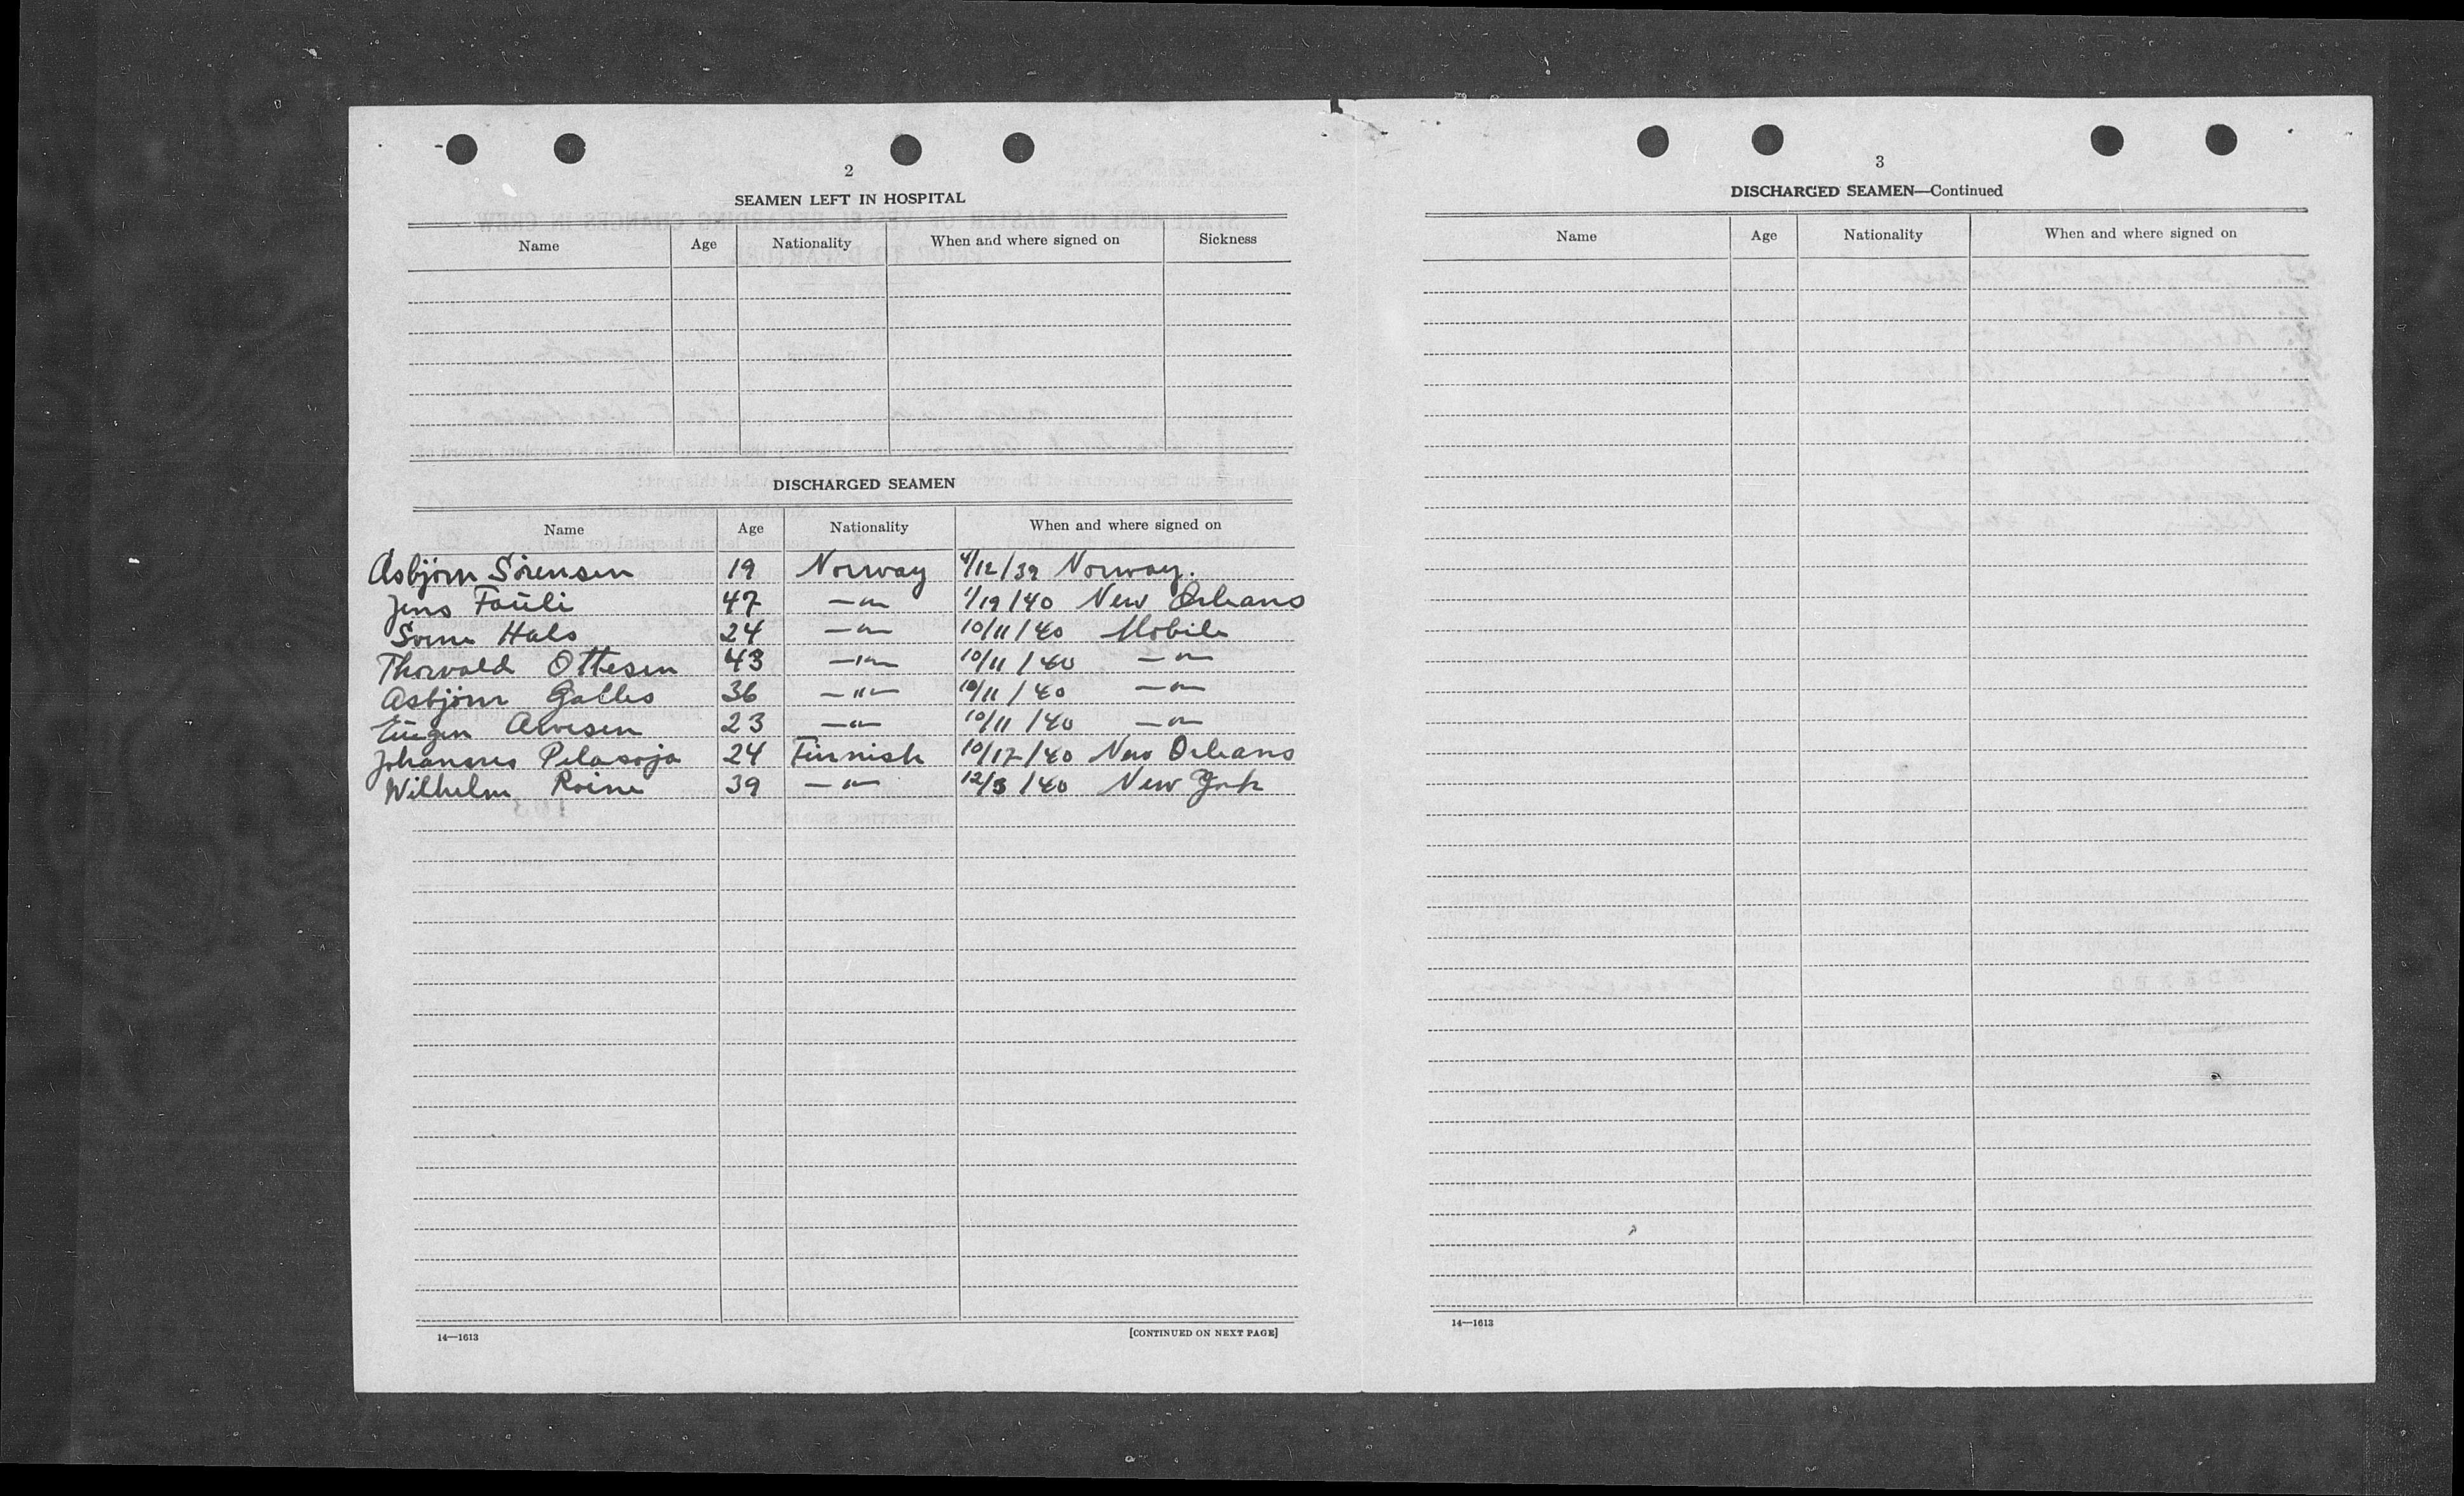 2
SEAMEN LEFT IN HOSPITAL
Name Age Nationality When and where signed on Sickness
DISCHARGED SEAMEN
Name Age Nationality When and where signed on
Asbjørn Sörensen 19 Norway 4/12/39 Norway.
Jens Fauli 47 —"— 1/19/40 New Orleans
Hals 24 —"— 10/11/40 Mobile
Thorvald Ottesen 43 —"— 10/11/40 —"—
Asbjørn 36 —"— 10/11/40 —"—
Eugen Alvesen 23 —"— 10/11/40 —"—
Johannes Pelasoja 24 Finnish 10/17/40 New Orleans
Wilhelm Roine 39 —"— 12/3/40 New York
14—1613 [CONTINUED ON NEXT PAGE]
3
DISCHARGED SEAMEN—Continued
Name Age Nationality When and where signed on
14—1613